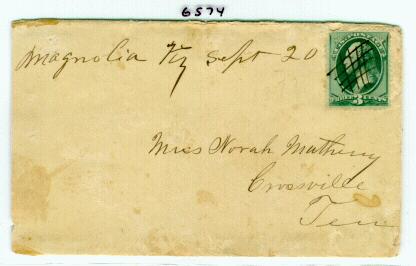 6574
Magnolia Ky Sept 20
U.S. POSTAGE
THREE 3 CENTS
Miss Norah Matheny
Crossville
Ten